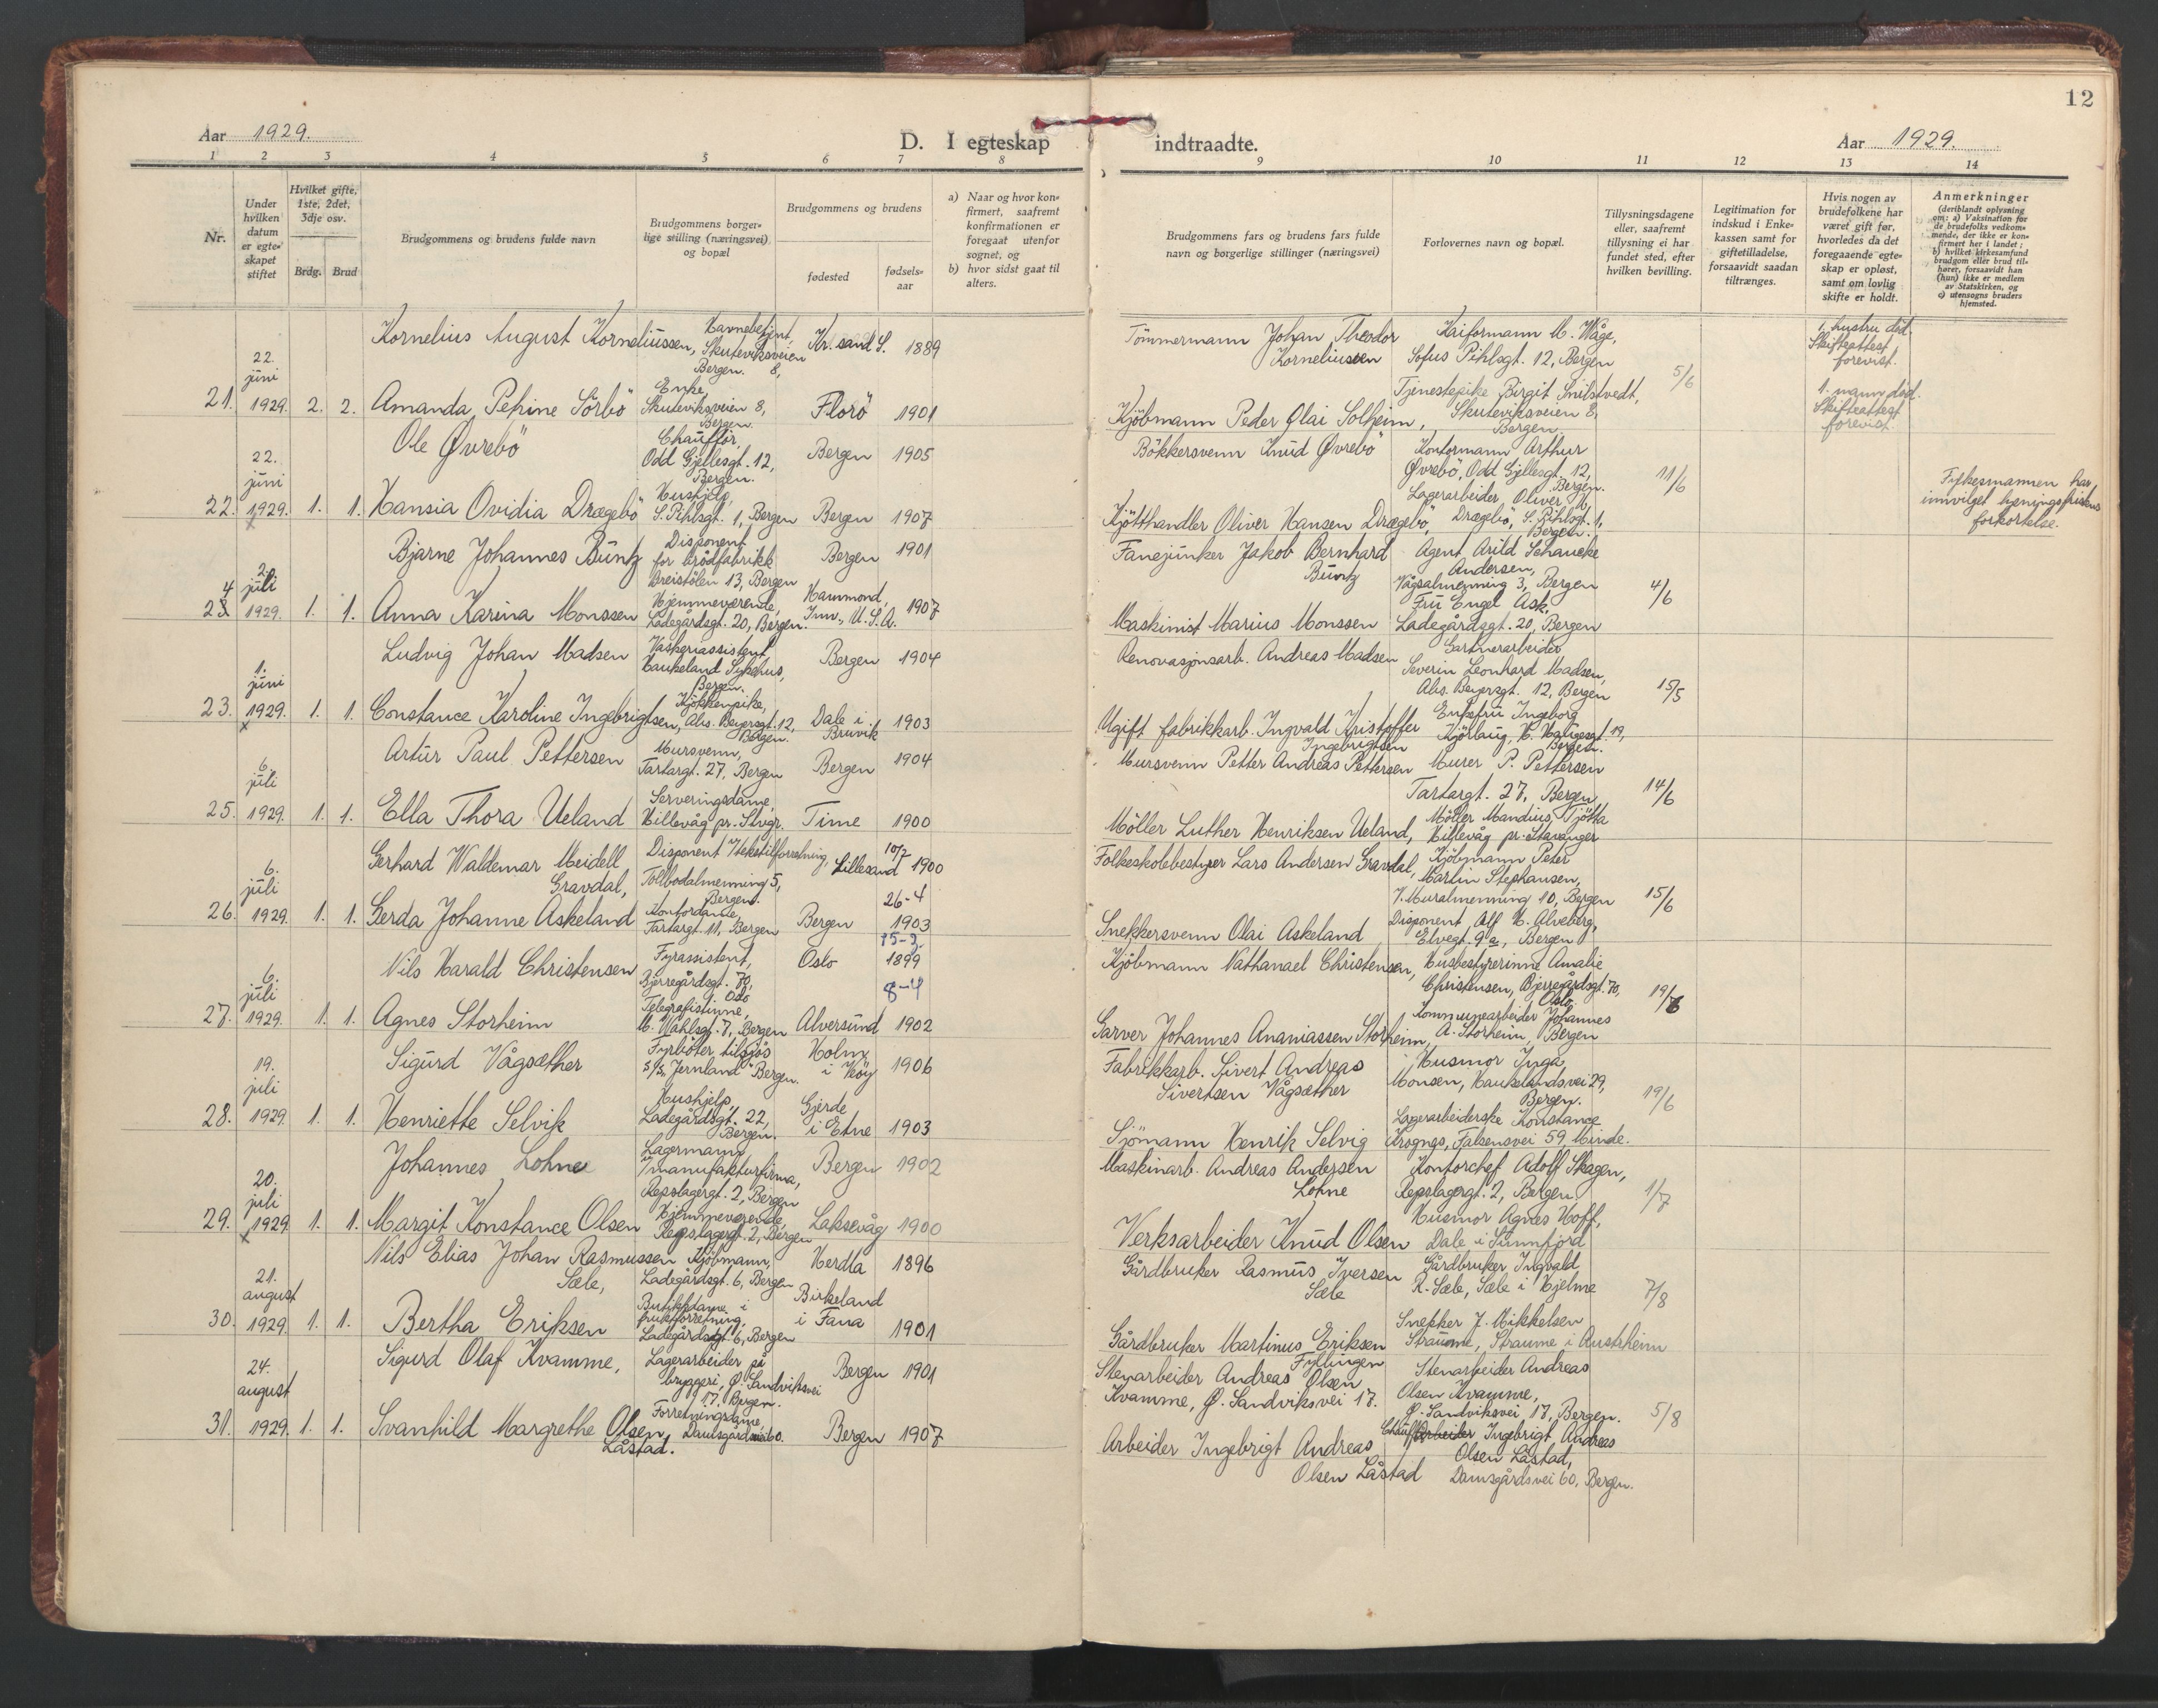 12
Aar 1929.
D. I egteskap indtraadte.
Aar 1929.
1 2 3 4 5 6 7 8 9 10 11 12 13 14
Nr.
Under hvilken datum er egteskapet stiftet
Hvilket gifte, 1ste, 2det, 3dje osv.
Brdg. Brud
Brudgommens og brudens fulde navn
Brudgommens borgerlige stilling (næringsvei) og bopæl
Brudgommens og brudens
fødested
fødselsaar
a) Naar og hvor konfirmert, saafremt konfirmationen er foregaat utenfor sognet, og
b) hvor sidst gaat til alters.
Brudgommens fars og brudens fars fulde navn og borgerlige stillinger (næringsvei)
Forlovernes navn og bopæl.
Tillysningsdagene eller, saafremt tillysning ei har fundet sted, efter hvilken bevilling.
Legitimation for indskud i Enkekassen samt for giftetilladelse, forsaavidt saadan tiltrænges.
Hvis nogen av brudefolkene har været gift før, hvorledes da det foregaaende egteskap er opløst, samt om lovlig skifte er holdt.
Anmerkninger
(deriblandt oplysning om: a) Vaksination for de brudefolks vedkommende, der ikke er konfirmert her i landet; b) hvilket kirkesamfund brudgom eller brud tilhører, forsaavidt han (hun) ikke er medlem av Statskirken, og c) utensogns bruders hjemsted.
21. 22. juni 1929. 2. 2.
Kornelius August Korneliussen, Havnebetjent, Skuteviksveien 8, Bergen. Kr.sand S. 1889
Tömmermann Johan Theodor Korneliussen
Kaiformann M. Våge, Sofus Pihlsgt. 12, Bergen
5/6
1. hustru död. Skifteattest forevist.
Amanda Petrine Sörbö Enke, Skuteviksveien 8, Bergen. Florö 1901
Kjöbmann Peder Olai Solheim,
Tjenestepike Birgit Snilstvedt, Skuteviksveien 8, Bergen.
1. mann död. Skifteattest forevist.
22. 22. juni 1929. x 1. 1.
Ole Øvrebö Chaufför, Odd Gjellesgt. 12, Bergen. Bergen 1905
Bökkersvenn Knud Øvrebö
Kontormann Arthur Øvrebö, Odd Gjellesgt. 12, Bergen.
11/6
Fylkesmannen har innvilget lysningsfristens forkortelse.
Hansia Ovidia Drægebö Hushjelp, S. Pihlsgt. 1, Bergen Bergen 1907
Kjötthandler Oliver Hansen Drægebö,
Lagerarbeider Oliver M. Drægebö, S. Pihlsgt. 1, Bergen.
4 23 2. juli 1929. 1. 1.
Bjarne Johannes Büntz Disponent for brödfabrikk Breistölen 13, Bergen Bergen 1901
Fanejunker Jakob Bernhard Büntz
Agent Arild Schancke Andersen, Vågsalmenning 3, Bergen
4/6
Anna Karina Monssen Hjemmeværende, Ladegårdsgt. 20, Bergen. Hammond, Inn., U.S.A. 1907
Maskinist Marius Monssen
Fru Engel Ask, Ladegårdsgt. 20, Bergen
23. 1. juni 1929. x 1. 1.
Ludvig Johan Madsen Vaskeriassistent, Haukeland Sykehus, Bergen. Bergen 1904
Renovasjonsarb. Andreas Madsen
Gartnerarbeider Severin Leonhard Madsen, Abs. Beyersgt. 12, Bergen
15/5
Constance Karoline Ingebrigtsen, Kjökkenpike, Abs. Beyersgt. 12, Bergen. Dale i Bruvik 1903
Ugift fabrikkarb. Ingvald Kristoffer Ingebrigtsen
Enkefru Ingeborg Kjörlaug, H. Haugesgt. 19, Bergen.
25. 6. juli 1929. 1. 1.
Artur Paul Pettersen Mursvenn, Tartargt. 27, Bergen Bergen 1904
Mursvenn Petter Andreas Pettersen
Murer P. Pettersen Tartargt. 27, Bergen
14/6
Ella Thora Ueland Serveringsdame, Hillevåg pr. Stvgr. Time 1900
Möller Luther Henriksen Ueland,
Möller Mandius Tjötta Hillevåg pr. Stavanger
26. 6. juli 1929. 1. 1.
Gerhard Waldemar Meidell Gravdal, Disponent i tekstilforretning, Tollbodalmenning 5, Bergen. Lillesand 10/7 1900
Folkeskolebestyrer Lars Andersen Gravdal,
Kjöbmann Peter Martin Stephansen, V. Muralmenning 10, Bergen
15/6
Gerda Johanne Askeland Kontordame, Tartargt. 11, Bergen Bergen 26-4 1903
Snekkersvenn Olai Askeland
Disponent Alf H. Alveberg, Elvegt. 9a, Bergen
27. 6. juli 1929. 1. 1.
Nils Harald Christensen Fyrassistent, Bjerregårdsgt. 70, Oslo Oslo 15-3 1899
Kjöbmann Nathanael Christensen,
Husbestyrerinne Amalie Christensen, Bjerregårdsgt. 70, Oslo
19/6
Agnes Storheim Telegrafistinne, M. Wahlsgt. 7, Bergen Alversund 8-4 1902
Garver Johannes Ananiassen Storheim,
Kommunearbeider Johannes A. Storheim, Bergen
28. 19. juli 1929. 1. 1.
Sigurd Vågsæther Fyrböter tilsjös s/s "Jernland" Bergen. Holm i Vöy 1906
Fabrikkarb. Sivert Andreas Sivertsen Vågsæther
Husmor Inga Monsen, Haukelandsvei 29, Bergen.
19/6
Henriette Selvik Hushjelp, Ladegårdsgt. 22, Bergen. Gjerde i Etne 1903
Sjömann Henrik Selvig
Lagerarbeiderske Konstance Krognes, Falsensvei 59, Minde.
29. 20. juli 1929. x 1. 1.
Johannes Lohne Lagermann i manufakturfirma, Repslagergt. 2, Bergen Bergen 1902
Maskinarb. Andreas Andersen Lohne
Kontorchef Adolf Skagen, Repslagergt. 2, Bergen
1/7
Margit Konstance Olsen Hjemmeværende, Repslagergt. 2, Bergen Laksevåg 1900
Verksarbeider Knud Olsen
Husmor Agnes Hoff, Dale i Sunnfjord
30. 21. august 1929. 1. 1.
Nils Elias Johan Rasmussen Sæle, Kjöbmann, Ladegårdsgt. 6, Bergen Herdla 1896
Gårdbruker Rasmus Iversen Sæle
Gårdbruker Ingvald R. Sæle, Sæle i Hjelme
7/8
Bertha Eriksen Butikkdame i fruktforretning, Ladegårdsgt. 6, Bergen Birkeland i Fana 1901
Gårdbruker Martinus Eriksen Fyllingen
Snekker J. Mikkelsen Straume, Straume i Austrheim
31. 24. august 1929. 1. 1.
Sigurd Olaf Kvamme, Lagerarbeider på bryggeri, Ø. Sandviksvei 17, Bergen. Bergen 1901
Stenarbeider Andreas Olsen Kvamme, Ø. Sandviksvei 17.
Stenarbeider Andreas Olsen Kvamme, Ø. Sandviksvei 17, Bergen.
5/8
Svanhild Margrethe Olsen Låstad. Forretningsdame, Damsgårdsvei 60. Bergen 1907
Arbeider Ingebrigt Andreas Olsen Låstad
Chauff. Arbeider Ingebrigt Andreas Olsen Låstad, Damsgårdsvei 60, Bergen.